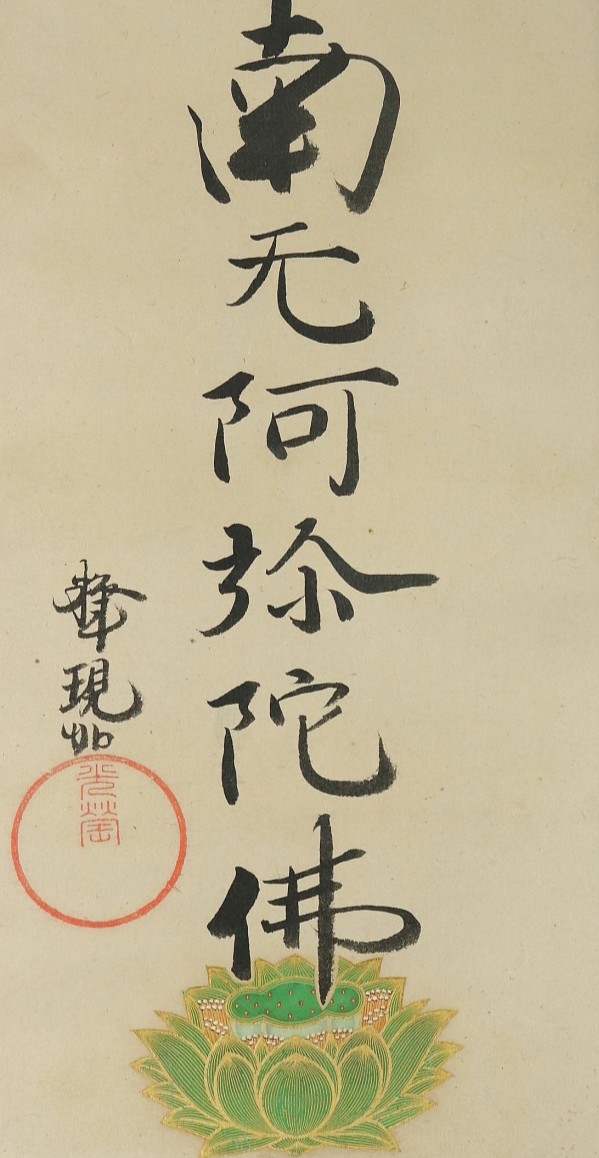 南无阿弥陀佛
釋現如
光瑩